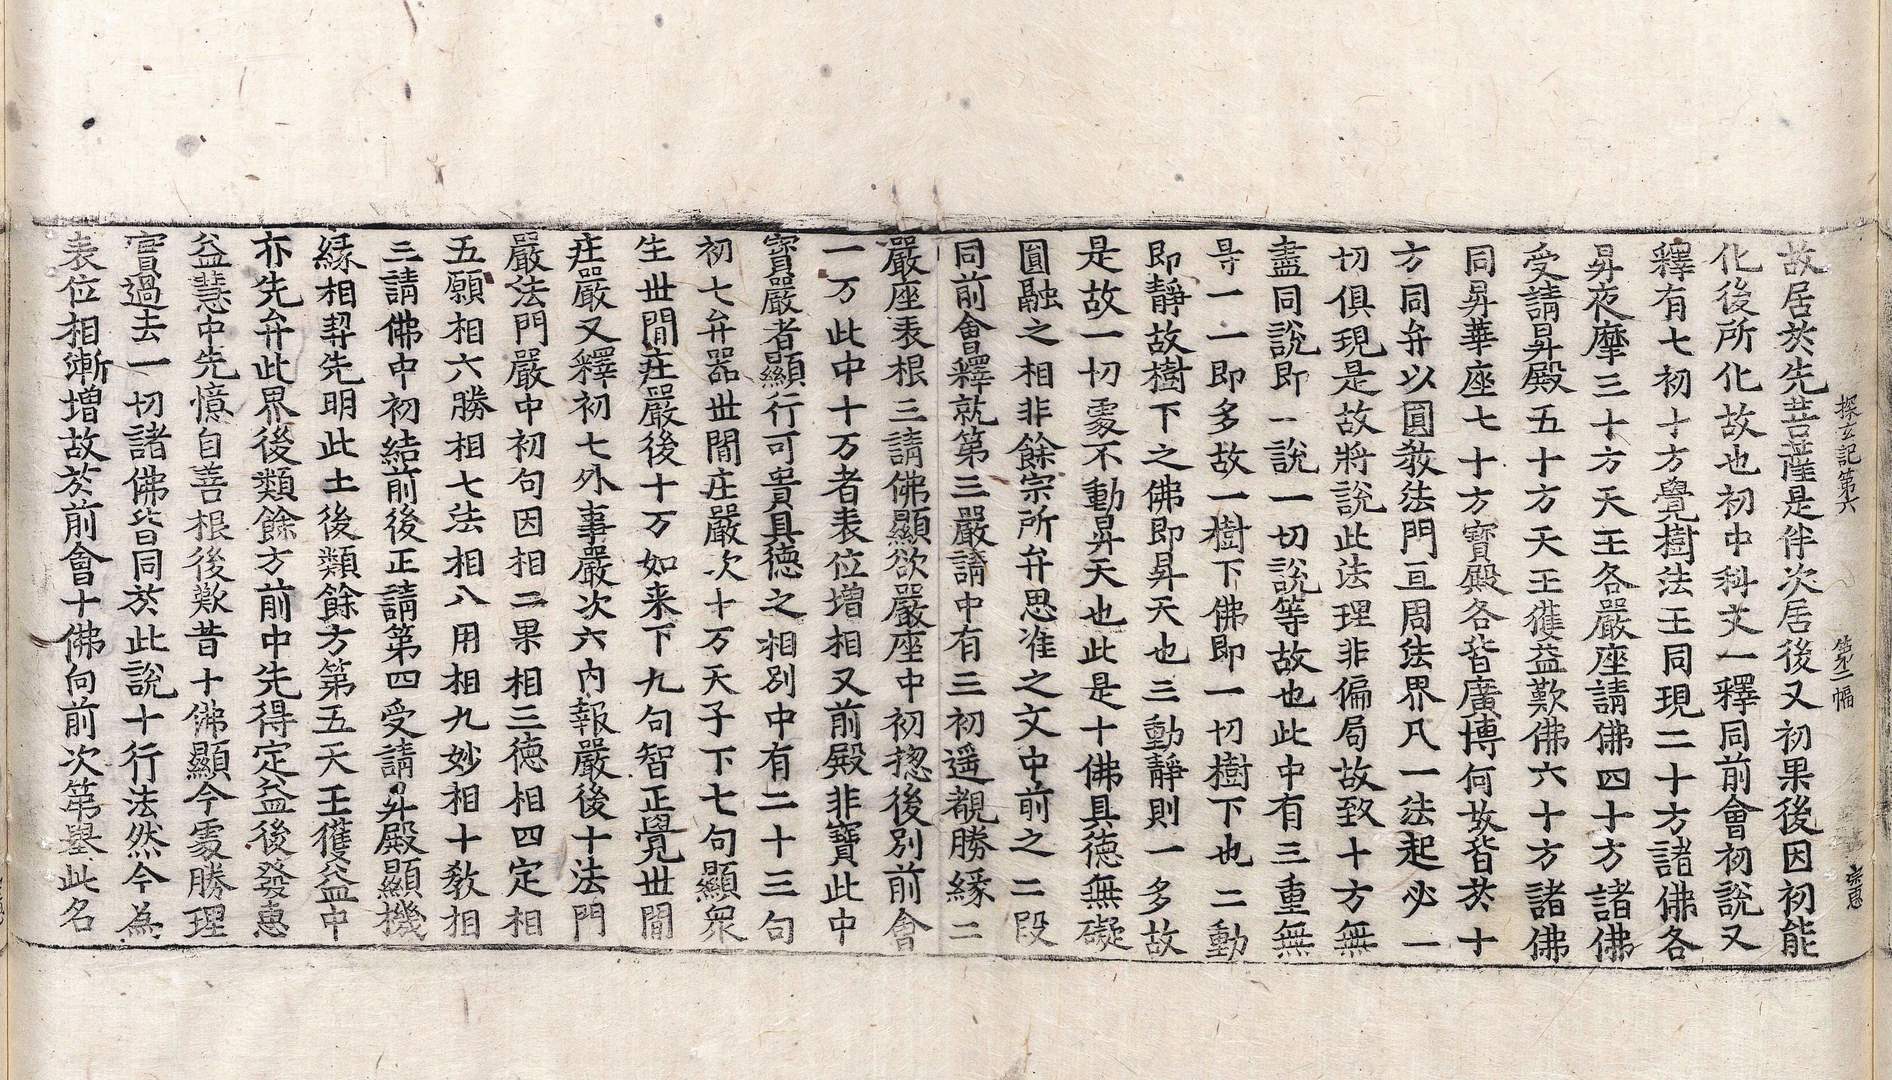 探玄記第六 第二幅 宗惠
故居於先菩薩是伴次居後又初果後因初能
化後所化故也初中科文一釋同前會初說又
釋有七初十方覺樹法王同現二十方諸佛各
昇夜摩三十方天王各嚴座請佛四十方諸佛
受請昇殿五十方天王獲益歎佛六十方諸佛
同昇華座七十方寶殿各皆廣博何故皆於十
方同弁以圓教法門亘周法界凡一法起必一
切俱現是故將說此法理非偏局故致十方無
盡同說即一說一切說等故也此中有三重無
㝵一一即多故一樹下佛即一切樹下也二動
即靜故樹下之佛即昇天也三動靜則一多故
是故一切䖏不動昇天也此是十佛具德無礙
圓融之相非餘宗所弁思准之文中前之二段
同前會釋就第三嚴請中有三初遥覩勝緣二
嚴座表根三請佛顯欲嚴座中初揔後別前會
一万此中十万者表位增相又前殿非寶此中
寶嚴者顯行可貴具德之相別中有二十三句
初七弁器世間庄嚴次十万天子下七句顯衆
生世間庄嚴後十万如来下九句智正覺世間
庄嚴又釋初七外事嚴次六內報嚴後十法門
嚴法門嚴中初句因相二果相三德相四定相
五願相六勝相七法相八用相九妙相十教相
三請佛中初結前後正請第四受請昇殿顯機
緣相契先明此土後類餘方第五天王獲益中
亦先弁此界後類餘方前中先得定益後發惠
益慧中先憶自善根後歎昔十佛顯今䖏勝理
實過去一切諸佛皆同於此說十行法然今為
表位相漸增故於前會十佛向前次第舉此名